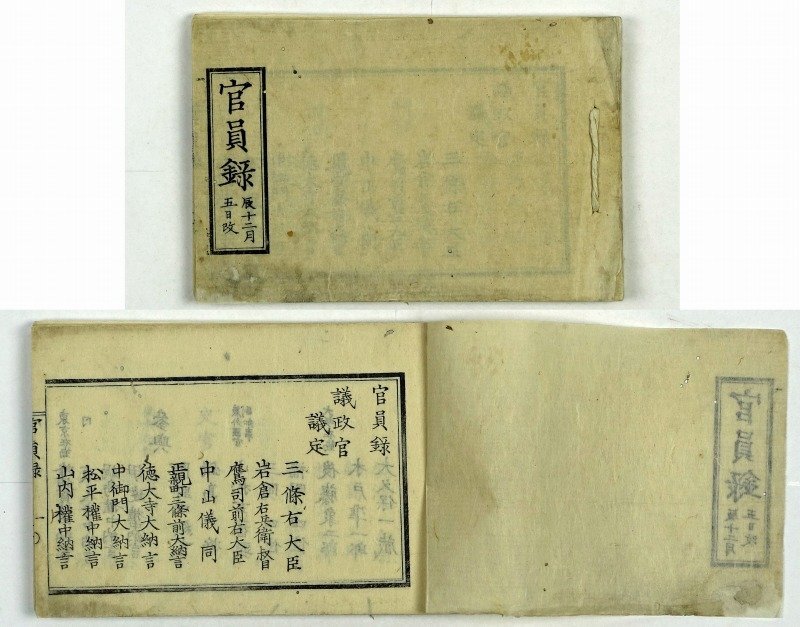 官員録
辰十二月
五日改
官員録
議政官
議定
三條右大臣
岩倉右兵衛督
鷹司前右大臣
中山儀同
正親町三條前大納言
徳大寺大納言
中御門大納言
松平權中納言
山内權中納言
官員録
一
官員録
辰十二月
五日改